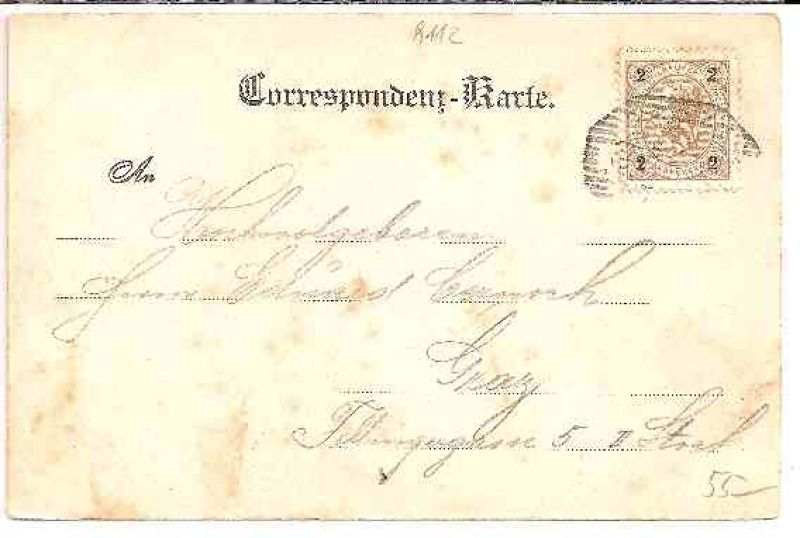 8112
Correspondenz-Karte.
2 2
2 2
An
Hochwolgeboren
Herrn Eduard
Graz
5 II Stock
55